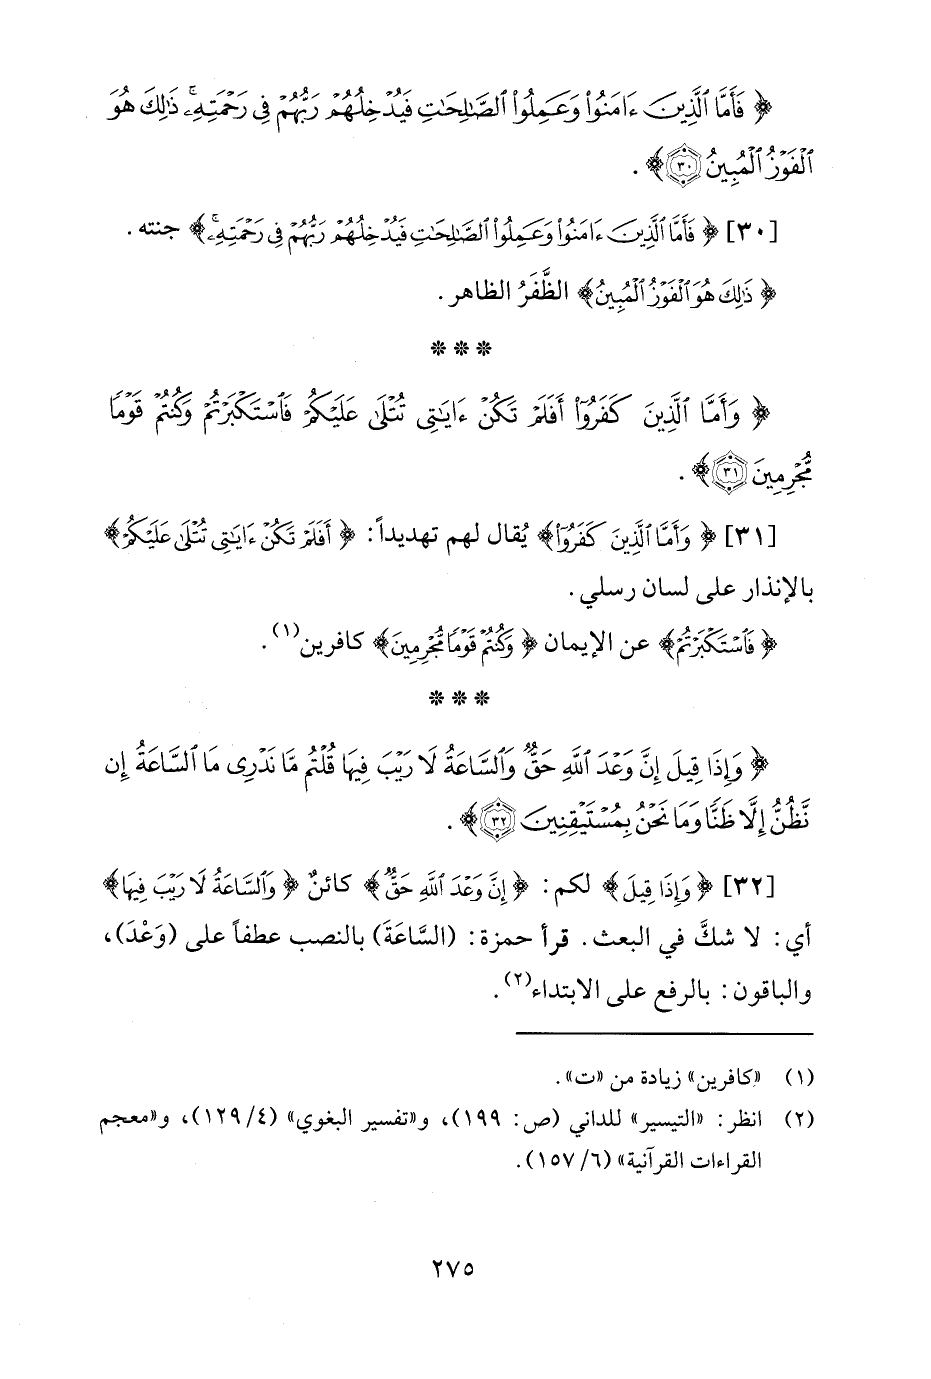 ﴿ فَأَمَّا ٱلَّذِينَ ءَامَنُوا۟ وَعَمِلُوا۟ ٱلصَّٰلِحَٰتِ فَيُدْخِلُهُمْ رَبُّهُمْ فِى رَحْمَتِهِۦ ۚ ذَٰلِكَ هُوَ
ٱلْفَوْزُ ٱلْمُبِينُ ۝٣٠﴾ .
[٣٠] ﴿ فَأَمَّا ٱلَّذِينَ ءَامَنُوا۟ وَعَمِلُوا۟ ٱلصَّٰلِحَٰتِ فَيُدْخِلُهُمْ رَبُّهُمْ فِى رَحْمَتِهِۦ ۚ﴾ جنته .
﴿ ذَٰلِكَ هُوَ ٱلْفَوْزُ ٱلْمُبِينُ﴾ الظَّفَرُ الظاهر .
* * *
﴿ وَأَمَّا ٱلَّذِينَ كَفَرُوٓا۟ أَفَلَمْ تَكُنْ ءَايَٰتِى تُتْلَىٰ عَلَيْكُمْ فَٱسْتَكْبَرْتُمْ وَكُنتُمْ قَوْمًا
مُّجْرِمِينَ ۝٣١﴾ .
[٣١] ﴿ وَأَمَّا ٱلَّذِينَ كَفَرُوٓا۟﴾ يُقال لهم تهديداً: ﴿ أَفَلَمْ تَكُنْ ءَايَٰتِى تُتْلَىٰ عَلَيْكُمْ﴾
بالإنذار على لسان رسلي .
﴿ فَٱسْتَكْبَرْتُمْ﴾ عن الإيمان ﴿ وَكُنتُمْ قَوْمًا مُّجْرِمِينَ﴾ كافرين(١) .
* * *
﴿ وَإِذَا قِيلَ إِنَّ وَعْدَ ٱللَّهِ حَقٌّ وَٱلسَّاعَةُ لَا رَيْبَ فِيهَا قُلْتُم مَّا نَدْرِى مَا ٱلسَّاعَةُ إِن
نَّظُنُّ إِلَّا ظَنًّا وَمَا نَحْنُ بِمُسْتَيْقِنِينَ ۝٣٢﴾ .
[٣٢] ﴿ وَإِذَا قِيلَ﴾ لكم: ﴿ إِنَّ وَعْدَ ٱللَّهِ حَقٌّ﴾ كائنٌ ﴿ وَٱلسَّاعَةُ لَا رَيْبَ فِيهَا﴾
أي: لا شكَّ في البعث. قرأ حمزة: (السَّاعَةَ) بالنصب عطفاً على (وَعْدَ)،
والباقون: بالرفع على الابتداء(٢) .
(١) «كافرين» زيادة من «ت» .
(٢) انظر: «التيسير» للداني (ص: ١٩٩)، و«تفسير البغوي» (٤/ ١٢٩)، و«معجم
القراءات القرآنية» (٦/ ١٥٧) .
٢٧٥